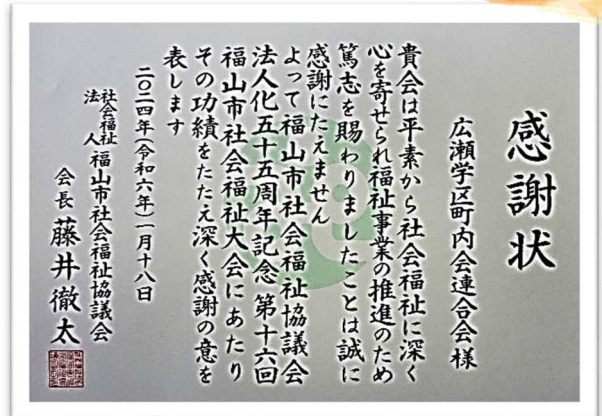 感謝状
広瀬学区町内会連合会様
貴会は平素から社会福祉に深く
心を寄せられ福祉事業の推進のため
篤志を賜わりましたことは誠に
感謝にたえません
よって福山市社会福祉協議会
法人化五十五周年記念第十六回
福山市社会福祉大会にあたり
その功績をたたえ深く感謝の意を
表します
二〇二四年(令和六年)一月十八日
社会福祉法人福山市社会福祉協議会
会長藤井徹太